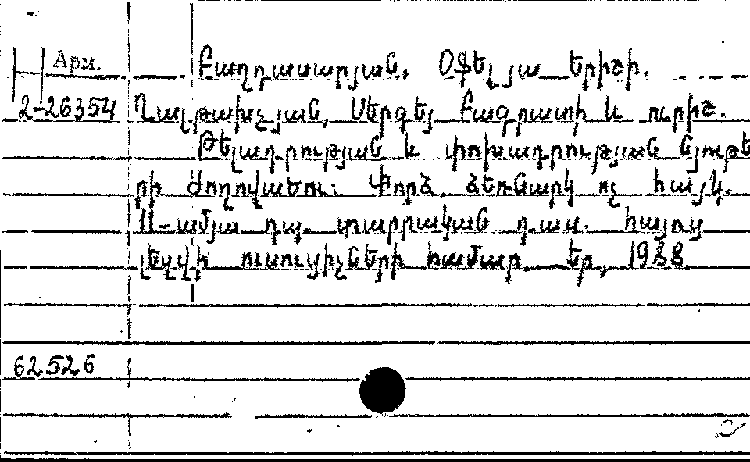 Арм.
Բաղդասարյան, Օֆելյա Երիշի.
2-26354 Ղալթախչյան, Սերգեյ Բագրատի և ուրիշ.
Թելադրության և փոխադրության նյութե-
րի ժողովածու: Փորձ. ձեռնարկ ոչ հայկ.
11-ամյա դպ. տարրական դաս. հայոց
լեզվի ուսուցիչների համար. Եր., 1988
62526